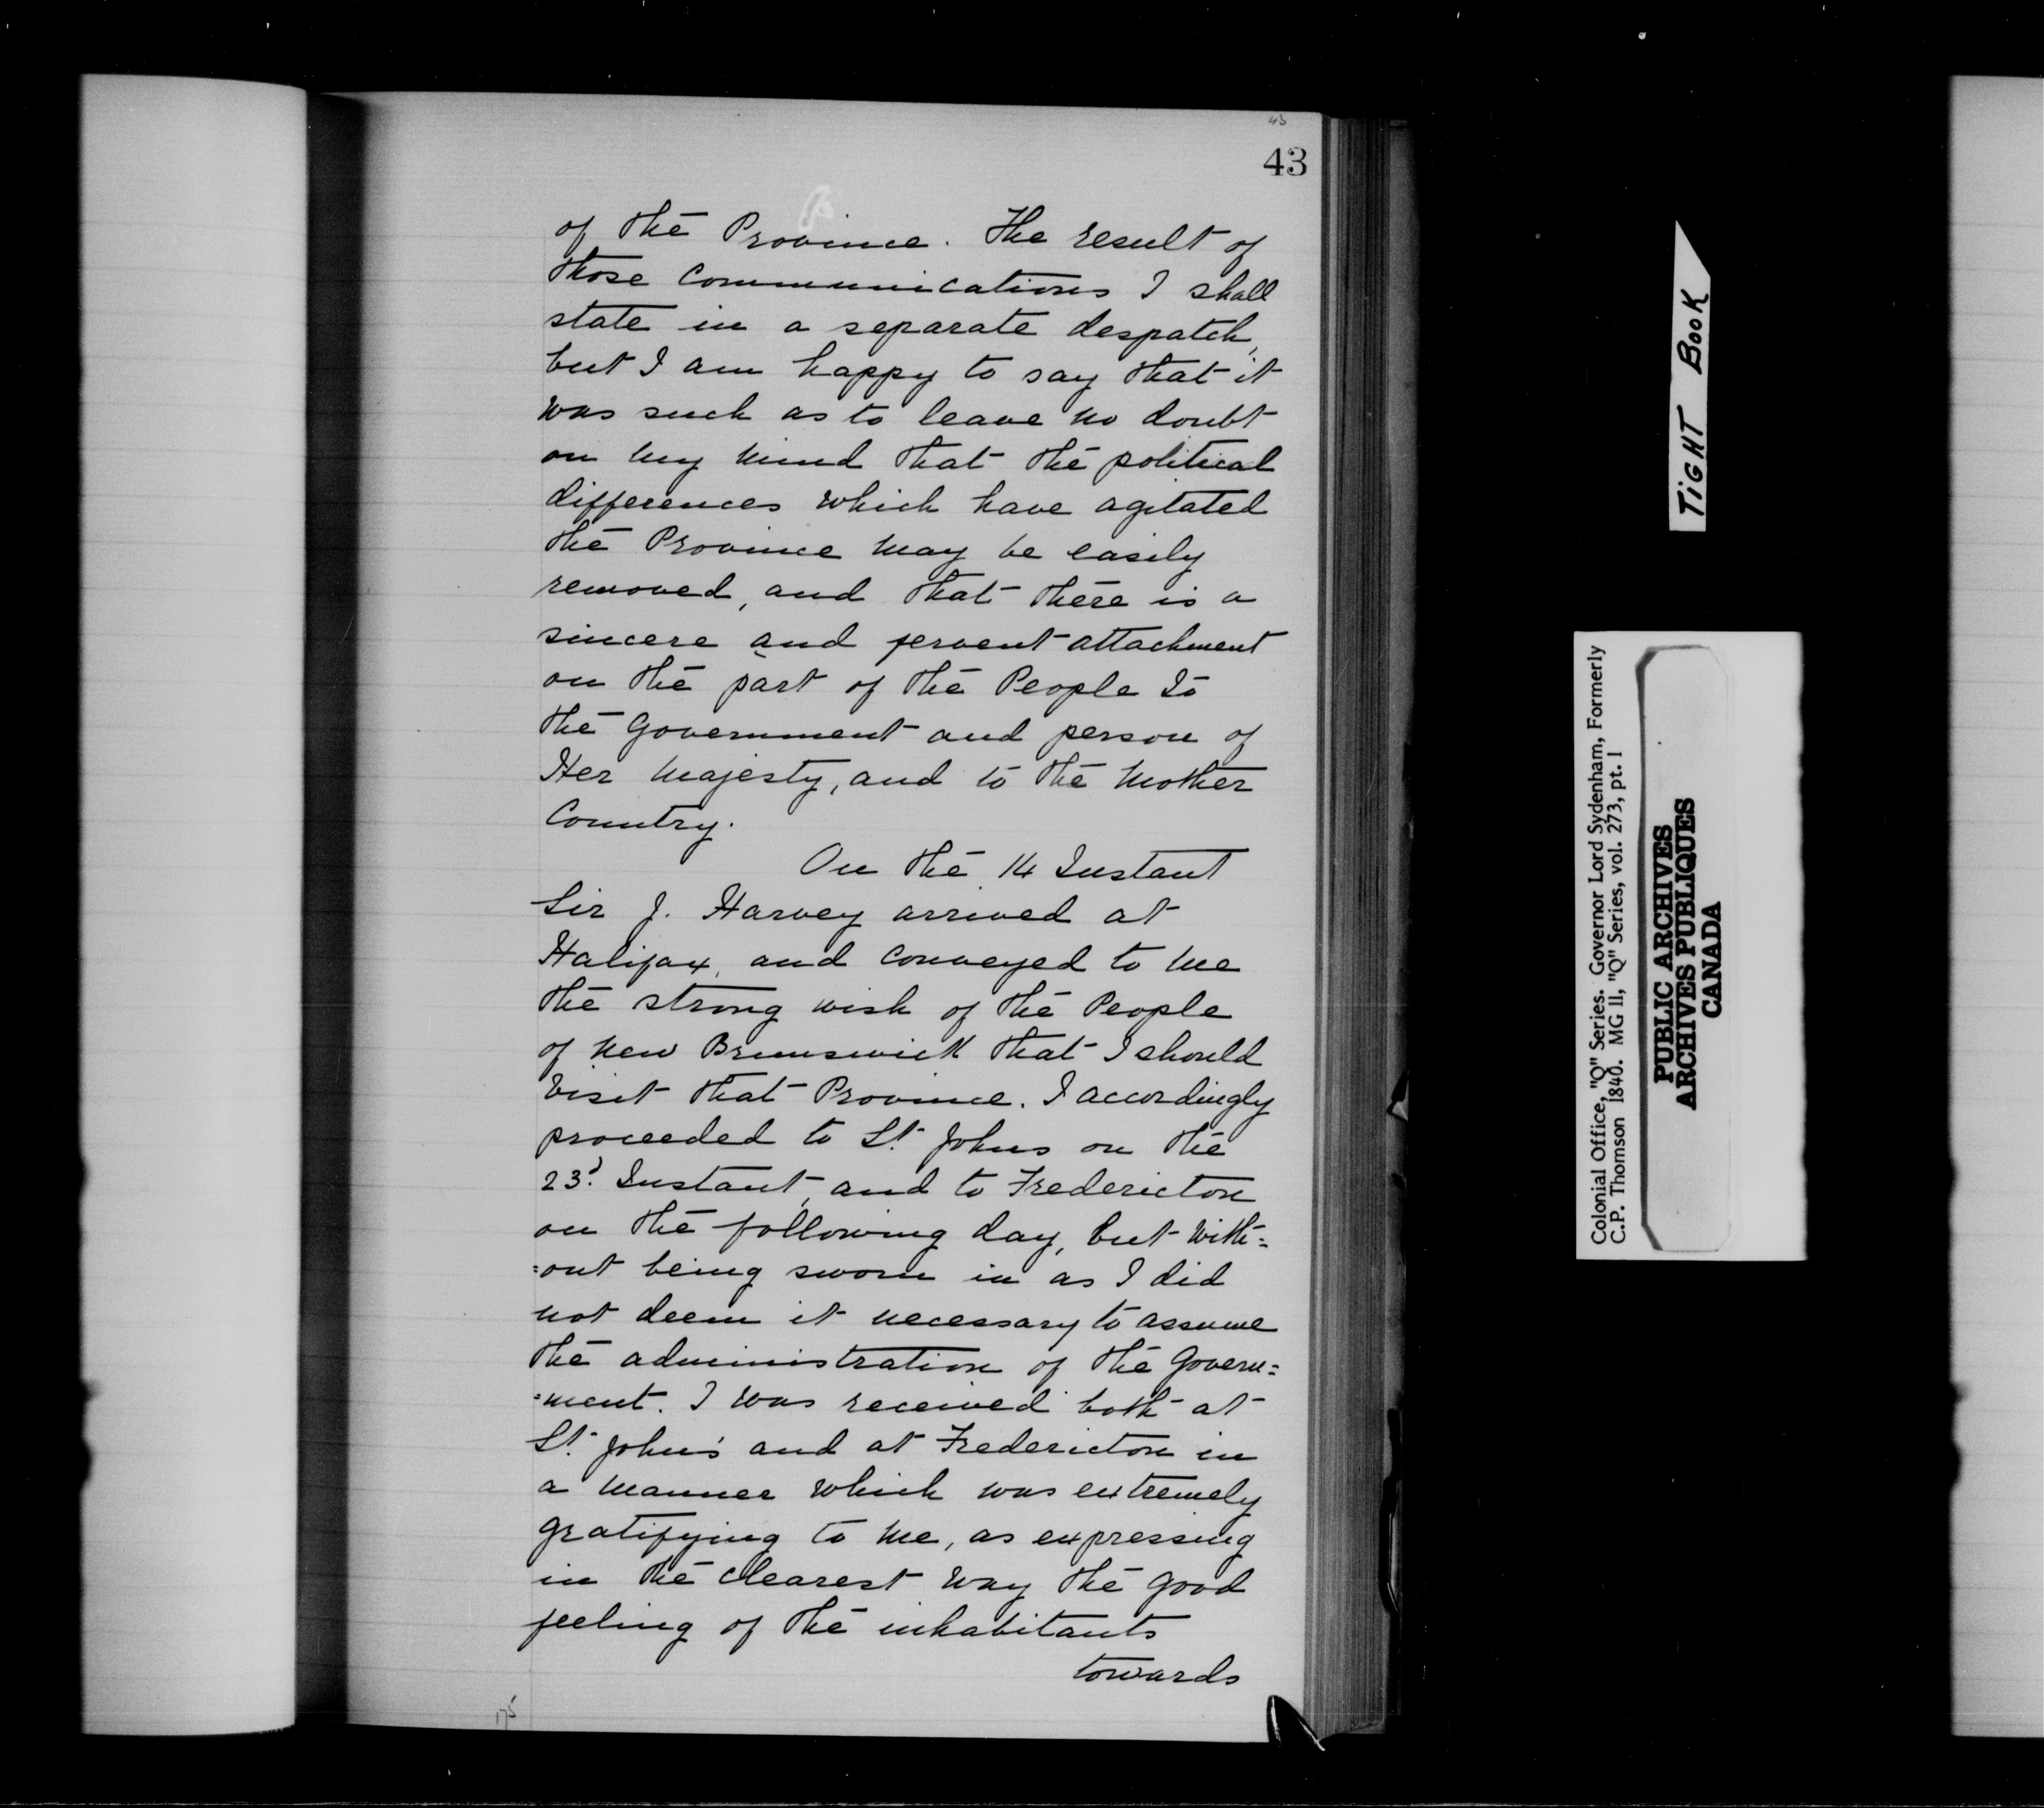 43
43
of the Province. The result of
those communications I shall
state in a separate despatch,
but I am happy to say that it
was such as to leave no doubt
on my mind that the political
differences which have agitated
the Province may be easily
removed, and that there is a
sincere and fervent attachment
on the part of the People to
the Government and person of
Her Majesty, and to the Mother
Country.
On the 14 Instant
Sir J. Harvey arrived at
Halifax, and conveyed to me
the strong wish of the People
of New Brunswick that I should
visit that Province. I accordingly
proceeded to St. Johns on the
23d. Instant, and to Fredericton
on the following day, but with=
=out being sworn in as I did
not deem it necessary to assume
the administration of the Govern=
=ment. I was received both at
St. John's and at Fredericton in
a manner which was extremely
gratifying to me, as expressing
in the clearest way the good
feeling of the inhabitants
towards
175
TIGHT BOOK
Colonial Office, "Q" Series. Governor Lord Sydenham, Formerly
C.P. Thomson 1840. MG 11, "Q" Series, vol. 273, pt. 1
PUBLIC ARCHIVES
ARCHIVES PUBLIQUES
CANADA